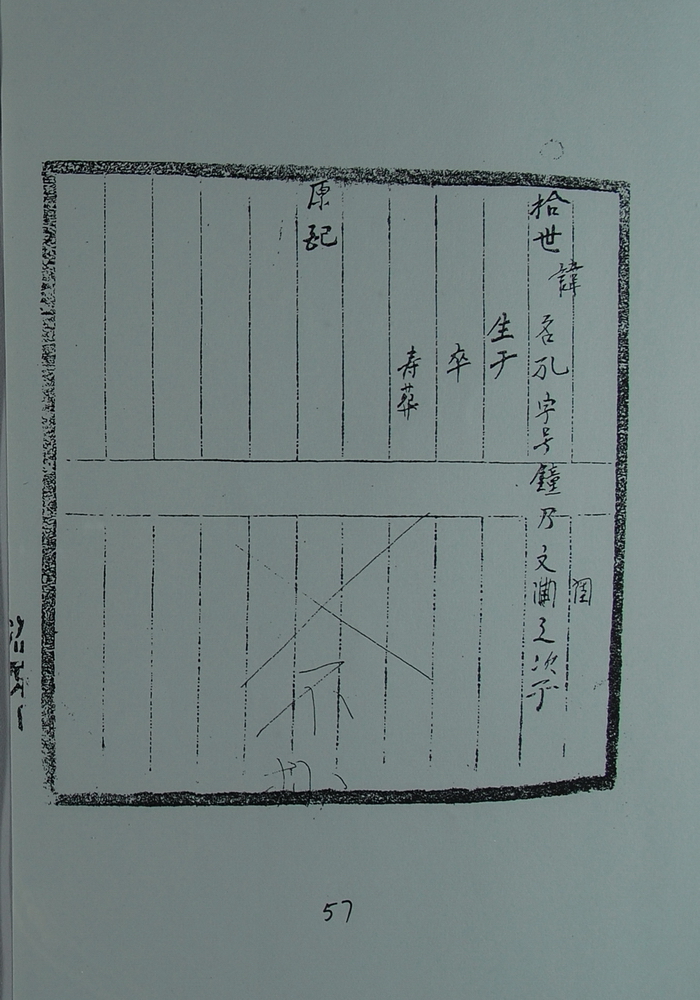 拾世 諱名孔字号鐘乃文瀾之次子
生于
卒
寿葬
原配
57